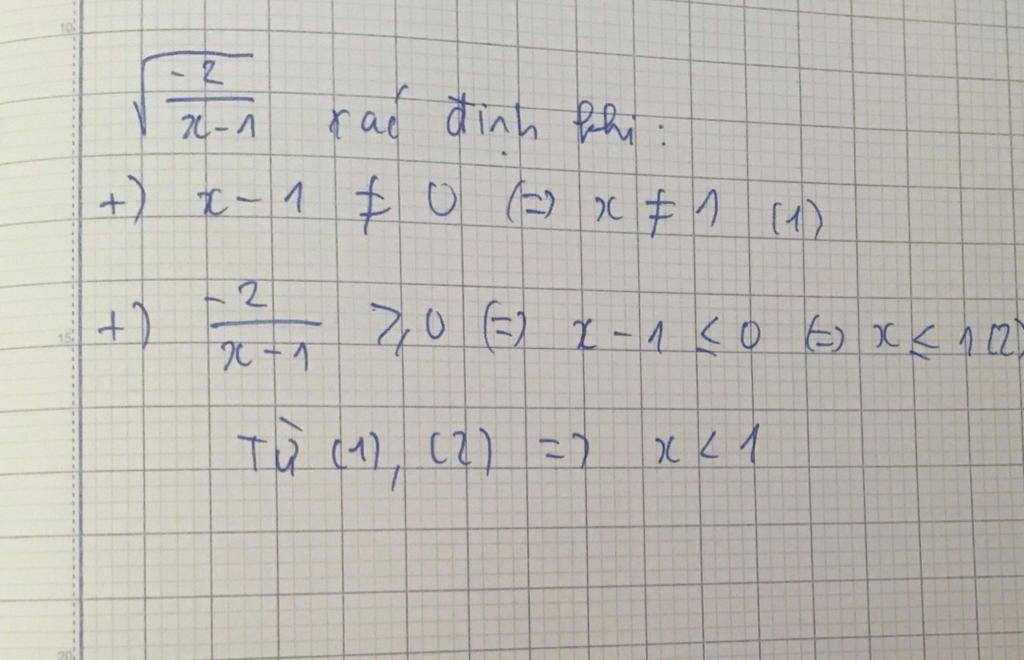 √(-2/(x-1)) xác định khi:
+) x - 1 ≠ 0 (=) x ≠ 1 (1)
+) -2/(x-1) ≥ 0 (=) x - 1 ≤ 0 (=) x ≤ 1 (2)
Từ (1), (2) => x < 1